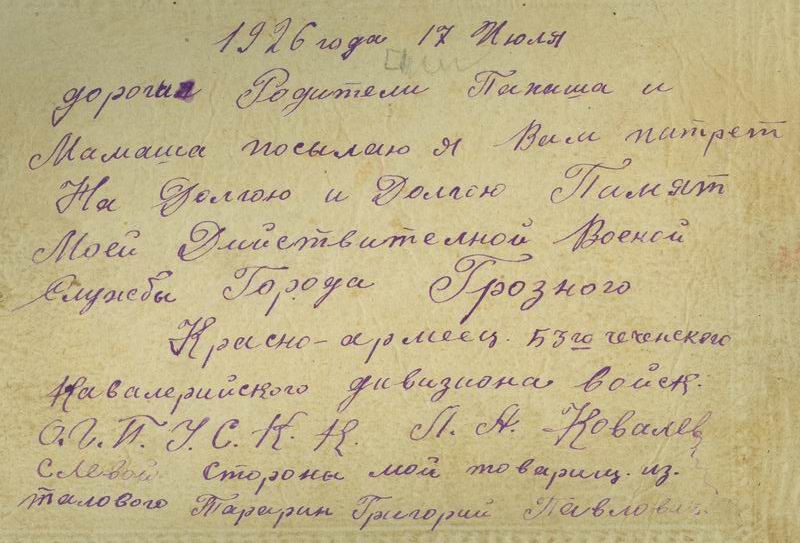 1926 года 17 Июля
дорогия Родители Папаша и
Мамаша посылаю я Вам патрет
На Долгою и Долгою Памят
Моей Дийствителной Воєной
Службы Города Грозного
Красно-армеец. 53го чеченского
Кавалерийского дивизиона войск.
О.Г.П.У.С.К.К. Л. А. Ковалев
с левой стороны мой товарищ. из.
талового Тарарин Григорий Павлович.